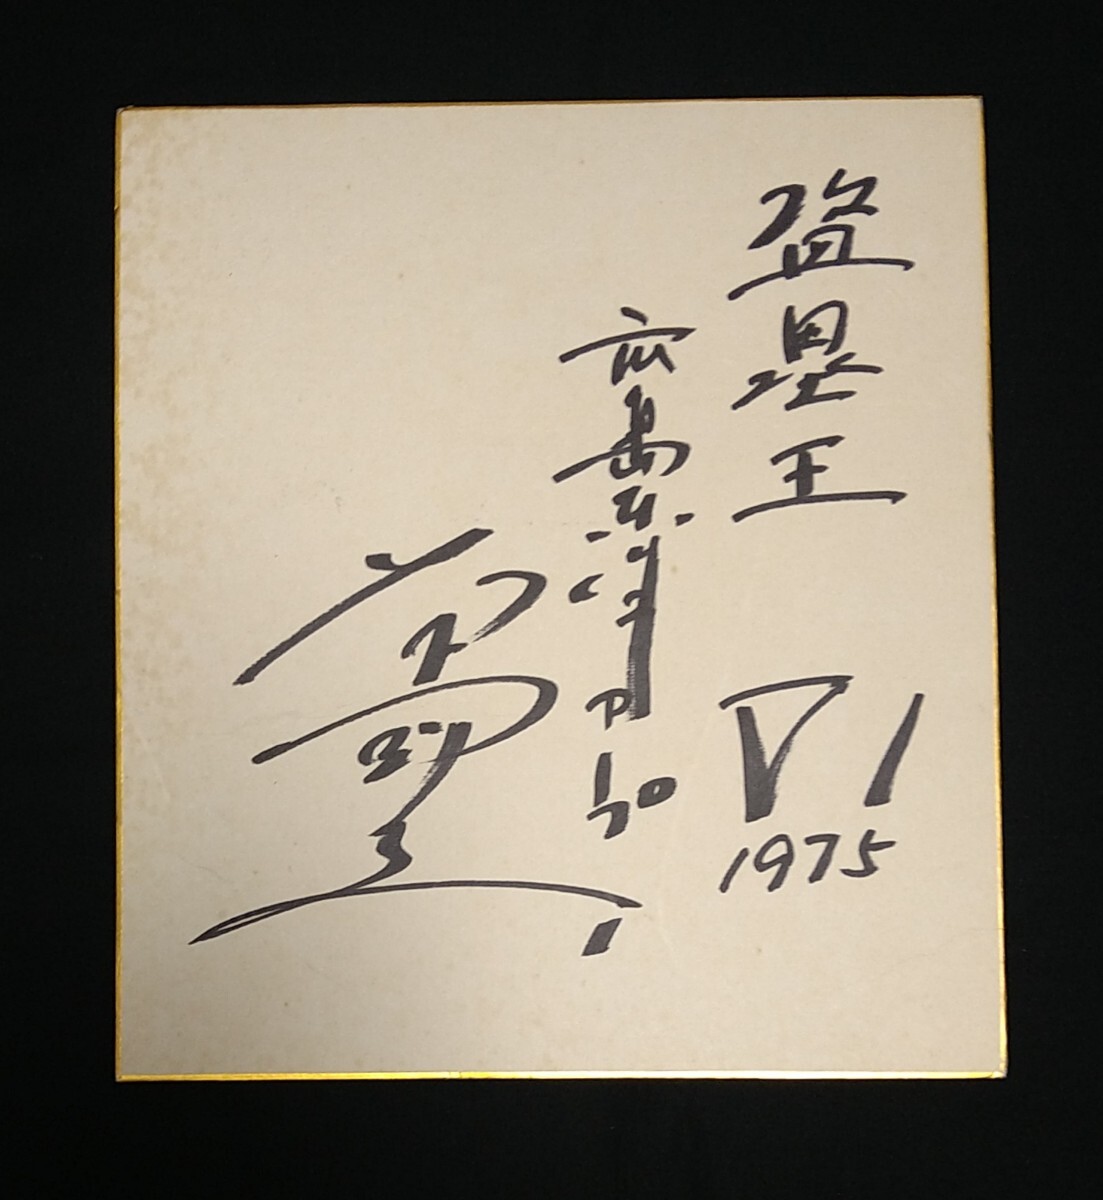 盗塁王
V1
1975
広島東洋カープ